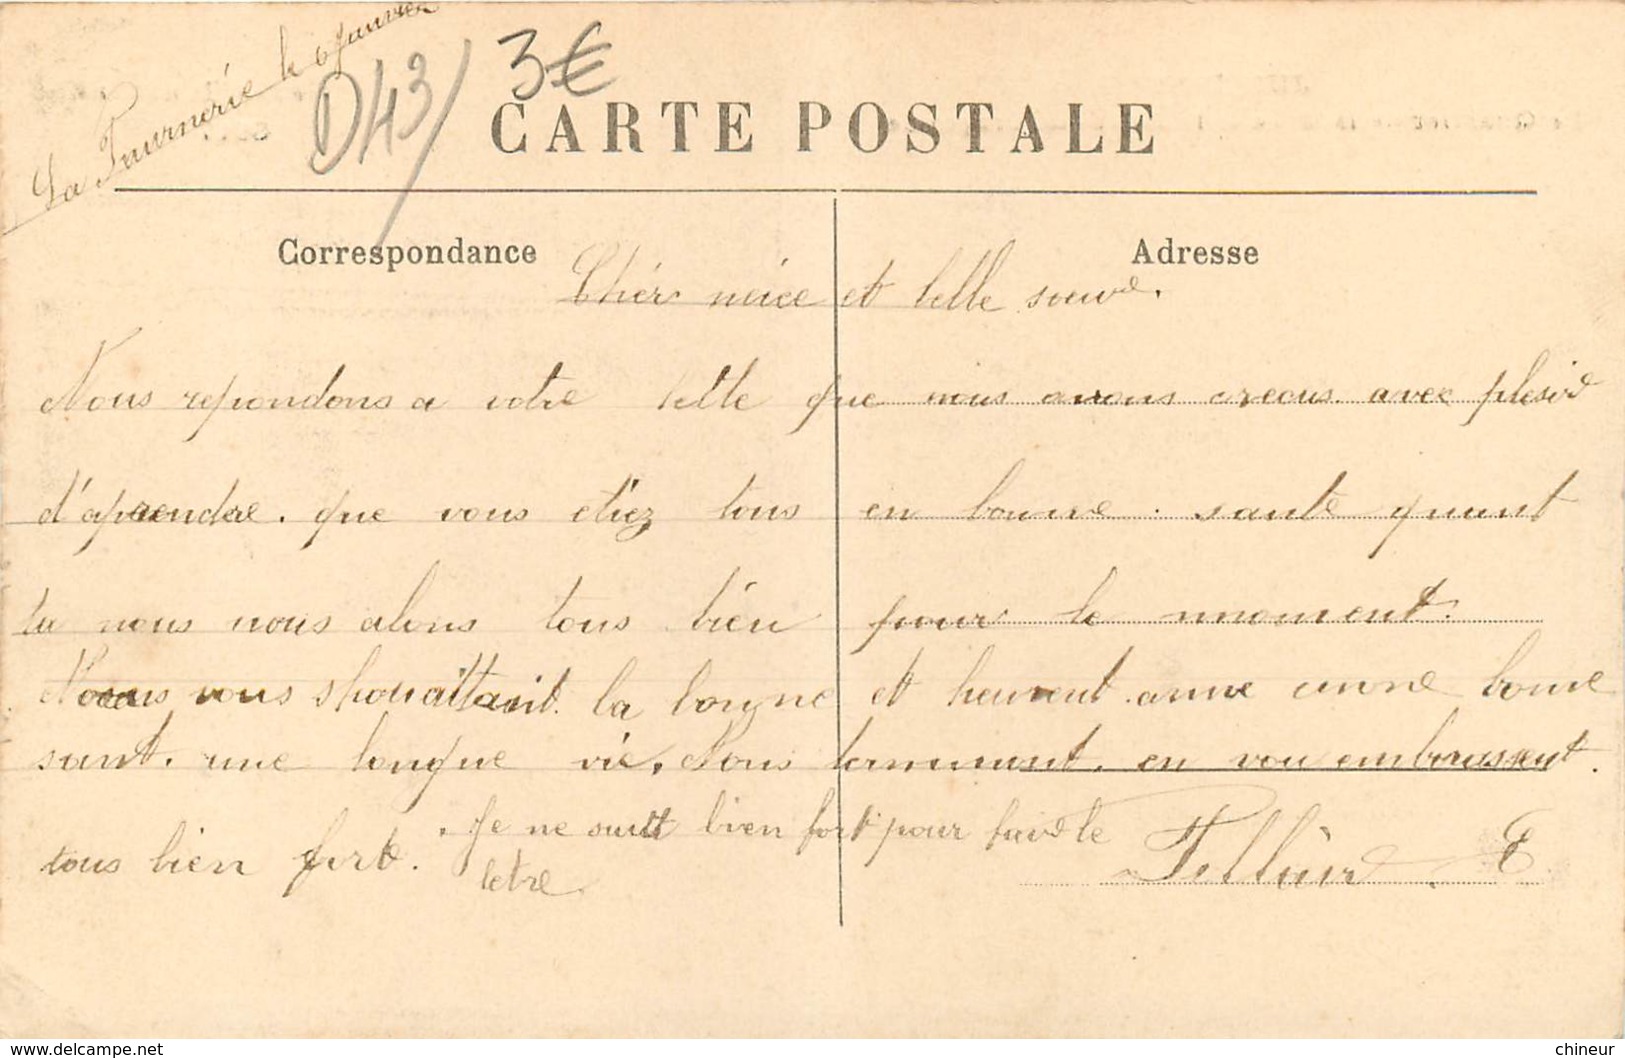 La Fournerie le 6 Janvier
D43/ 3€
CARTE POSTALE
Correspondance
Adresse
Chér niéce et belle soeure.
Nous repondons a votre lette que nous avons creçus avec plesire
d'aprendre. que vous etiez tous en bonne. santé quant
ta nous nous alons tous bien pour le moment.
Nous vous shouaittant. la bonyne et heureut anne eunne bonne
sant. une longue vie. Nous termnant. en vou embrassent.
tous bien fort. Je ne suitt bien fort pour faire le
letre.
E
chineur
www.delcampe.net